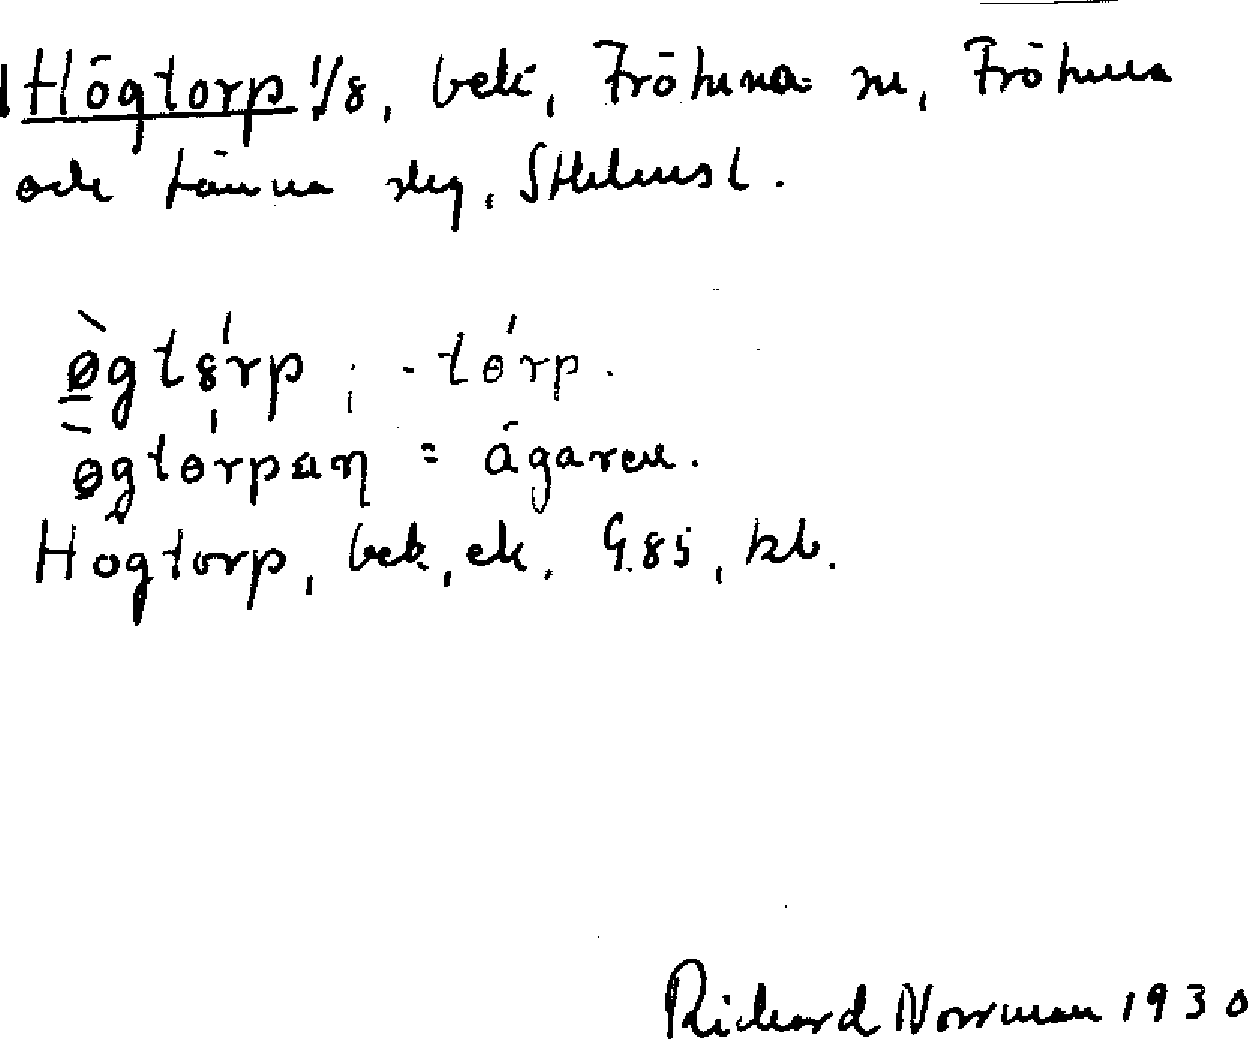 Högtorp 1/8, bek, Frötuna sn, Frötuna
och Länna slg, Sthlmsl.
øgtørp ; -törp.
øgtørpan = ägaren.
Högtorp, bek, ek. G.85, kb.
Richard Norrman 1930